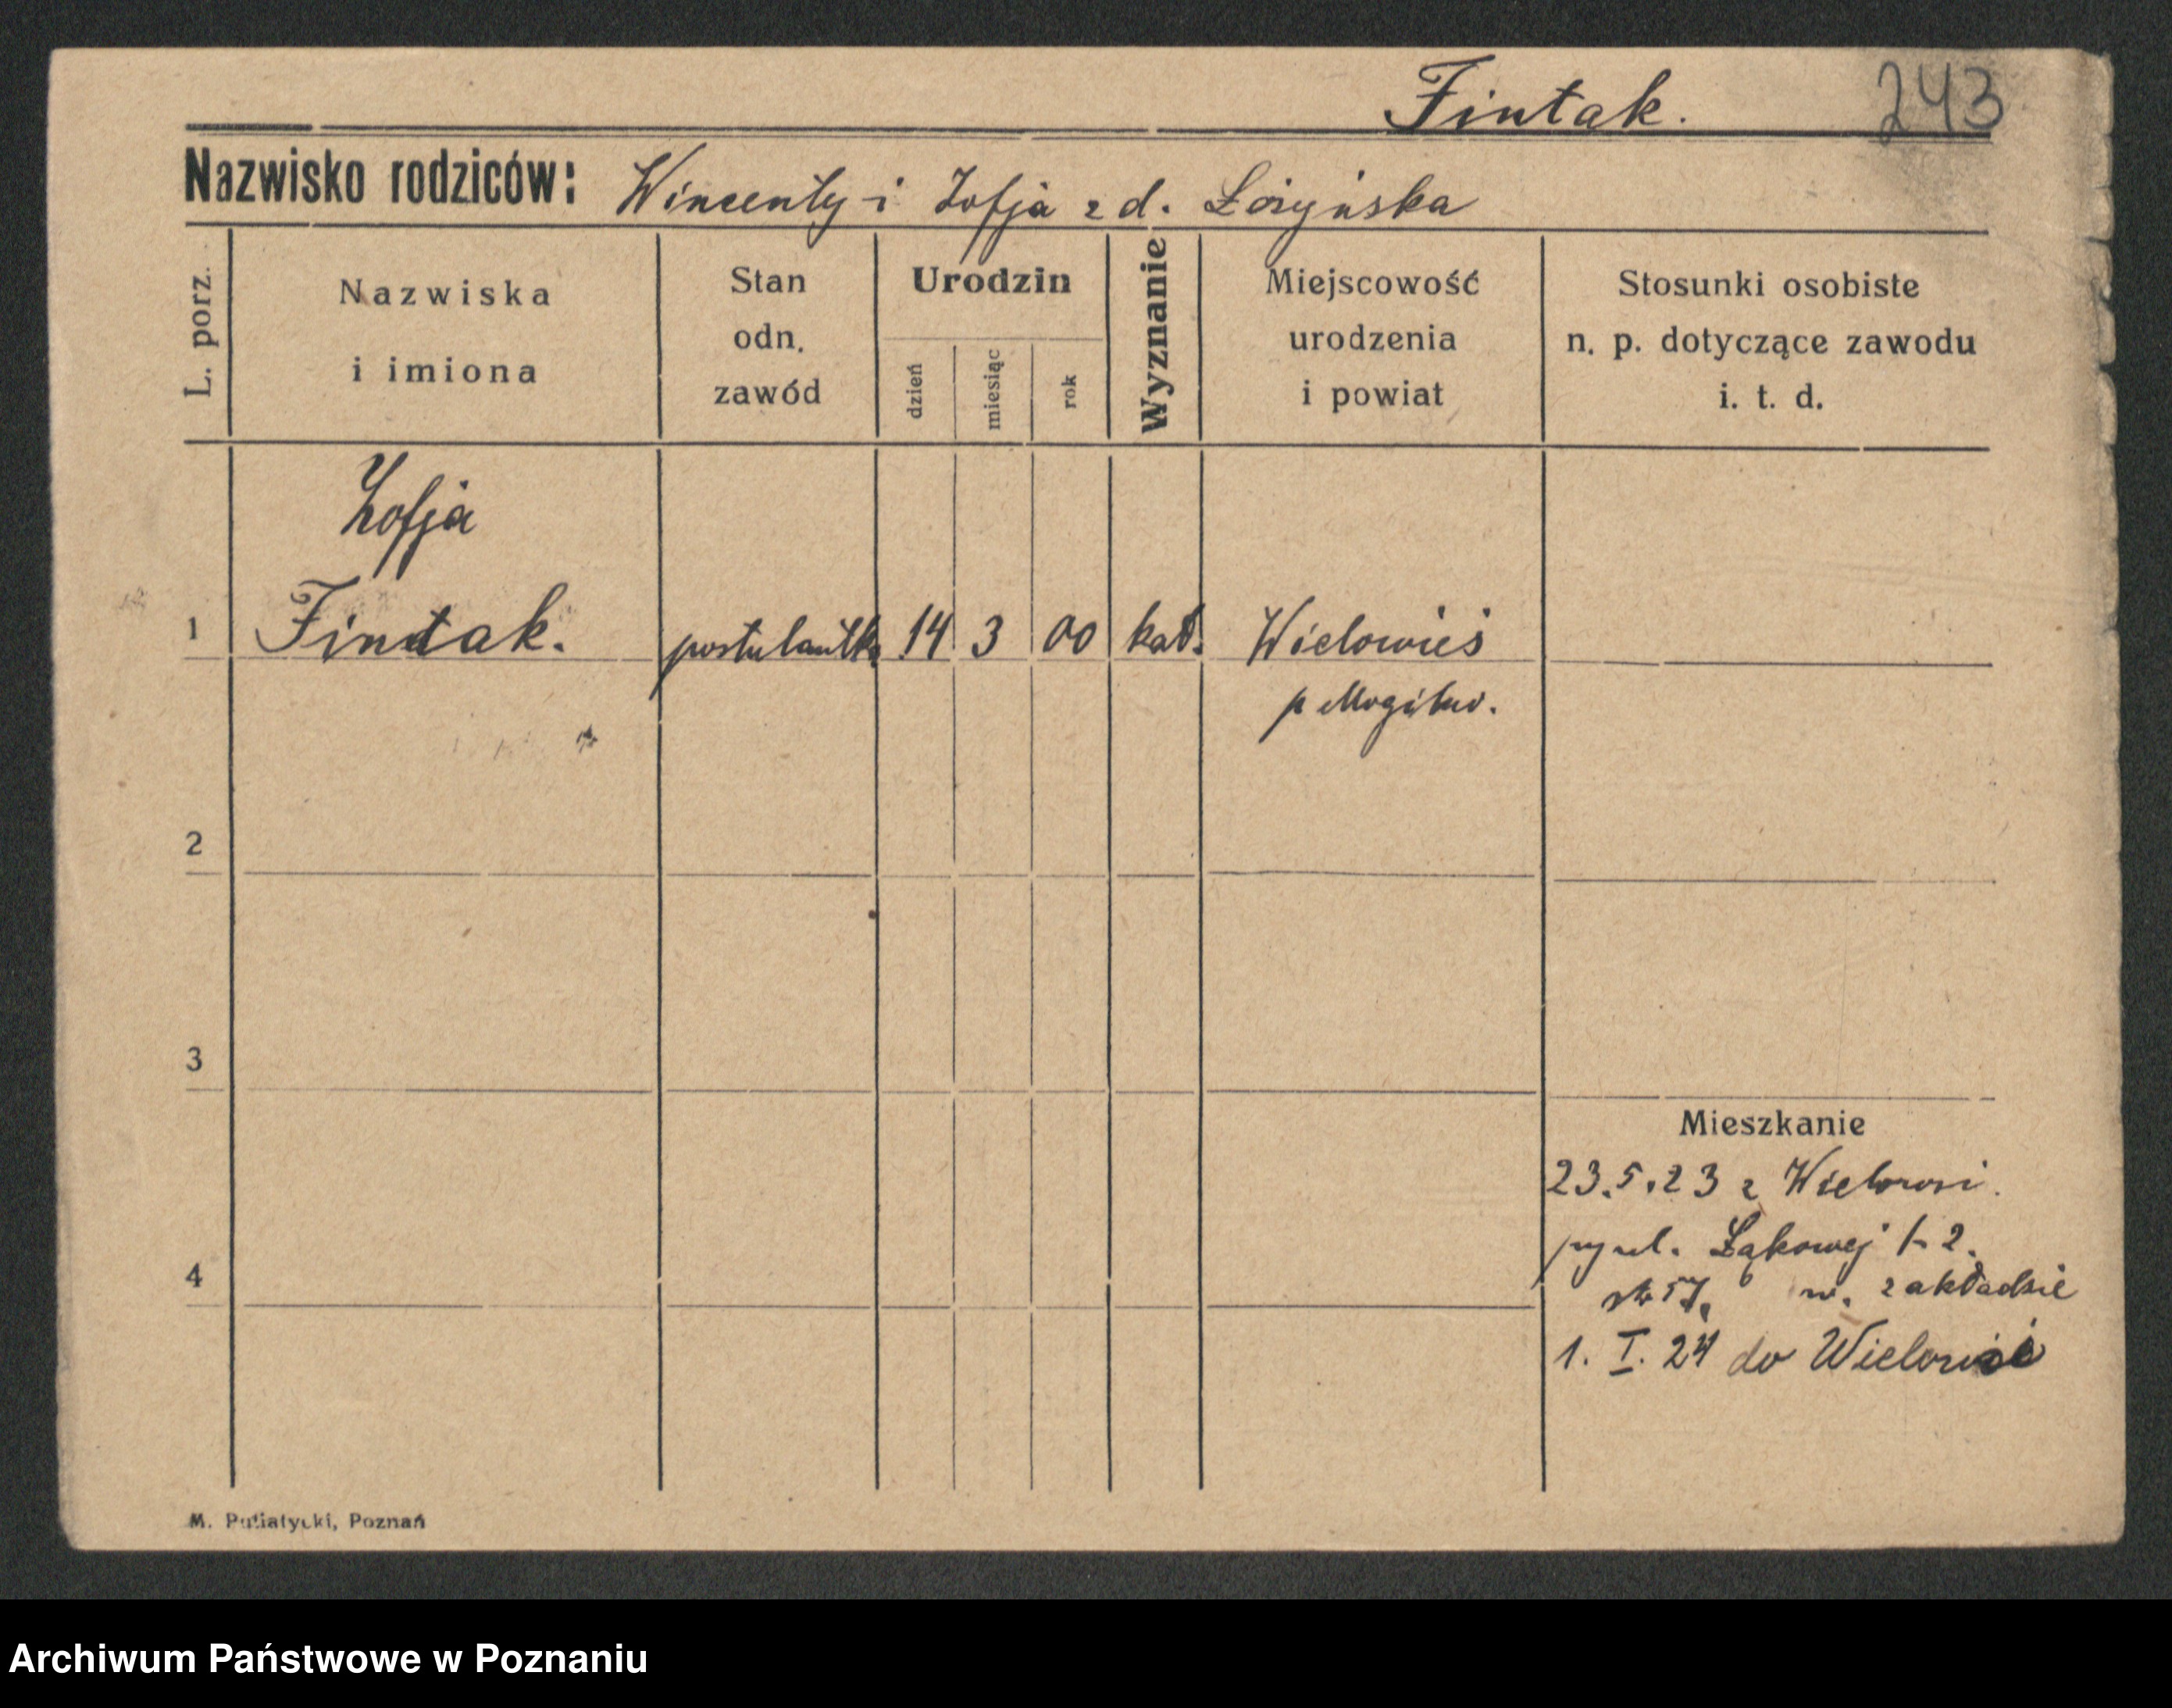 Fintak. 243
Nazwisko rodziców: Wincenty i Zofja z d. Łożyńska
L. porz.
Nazwiska
i imiona
Stan
odn.
zawód
Urodzin
dzień
miesiąc
rok
Wyznanie
Miejscowość
urodzenia
i powiat
Stosunki osobiste
n. p. dotyczące zawodu
i. t. d.
Zofja
1 Fintak. postulantka 14 3 00 kat. Wielowieś
p Mogilno.
2
3
Mieszkanie
23.5.23 z Wielowsi.
4
ul. Łąkowej 1-2.
57. w. zakładzie
1. I. 24 do Wielowsi
M. Putiatycki, Poznań
Archiwum Państwowe w Poznaniu